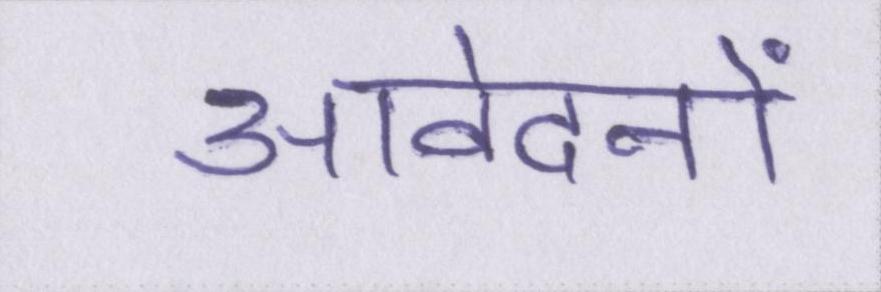 आवेदनों